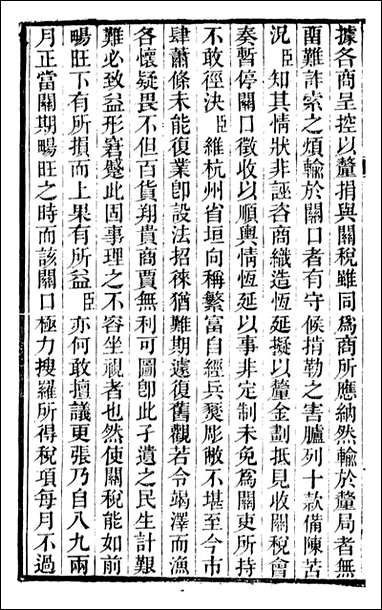 據各商呈控以釐捐與關稅雖同爲商所應納然輸於釐局者無
酉難詐索之煩輸於關口者有守候掯勒之害臚列十款備陳苦
況臣知其情狀非誣咨商織造恆延擬以釐金劃抵見收關稅會
奏暫停關口徵收以順輿情恆延以事非定制未免爲關吏所持
不敢徑決臣維杭州省垣向稱繁富自經兵燹彫敝不堪至今市
肆蕭條未能復業卽設法招徠猶難期遽復舊觀若令竭澤而漁
各懷疑畏不但百貨翔貴商賈無利可圖卽此孑遺之民生計艱
難必致益形窘蹙此固事理之不容坐視者也然使關稅能如前
暢旺下有所損而上果有所益臣亦何敢擅議更張乃自八九兩
月正當關期暢旺之時而該關口極力搜羅所得稅項每月不過